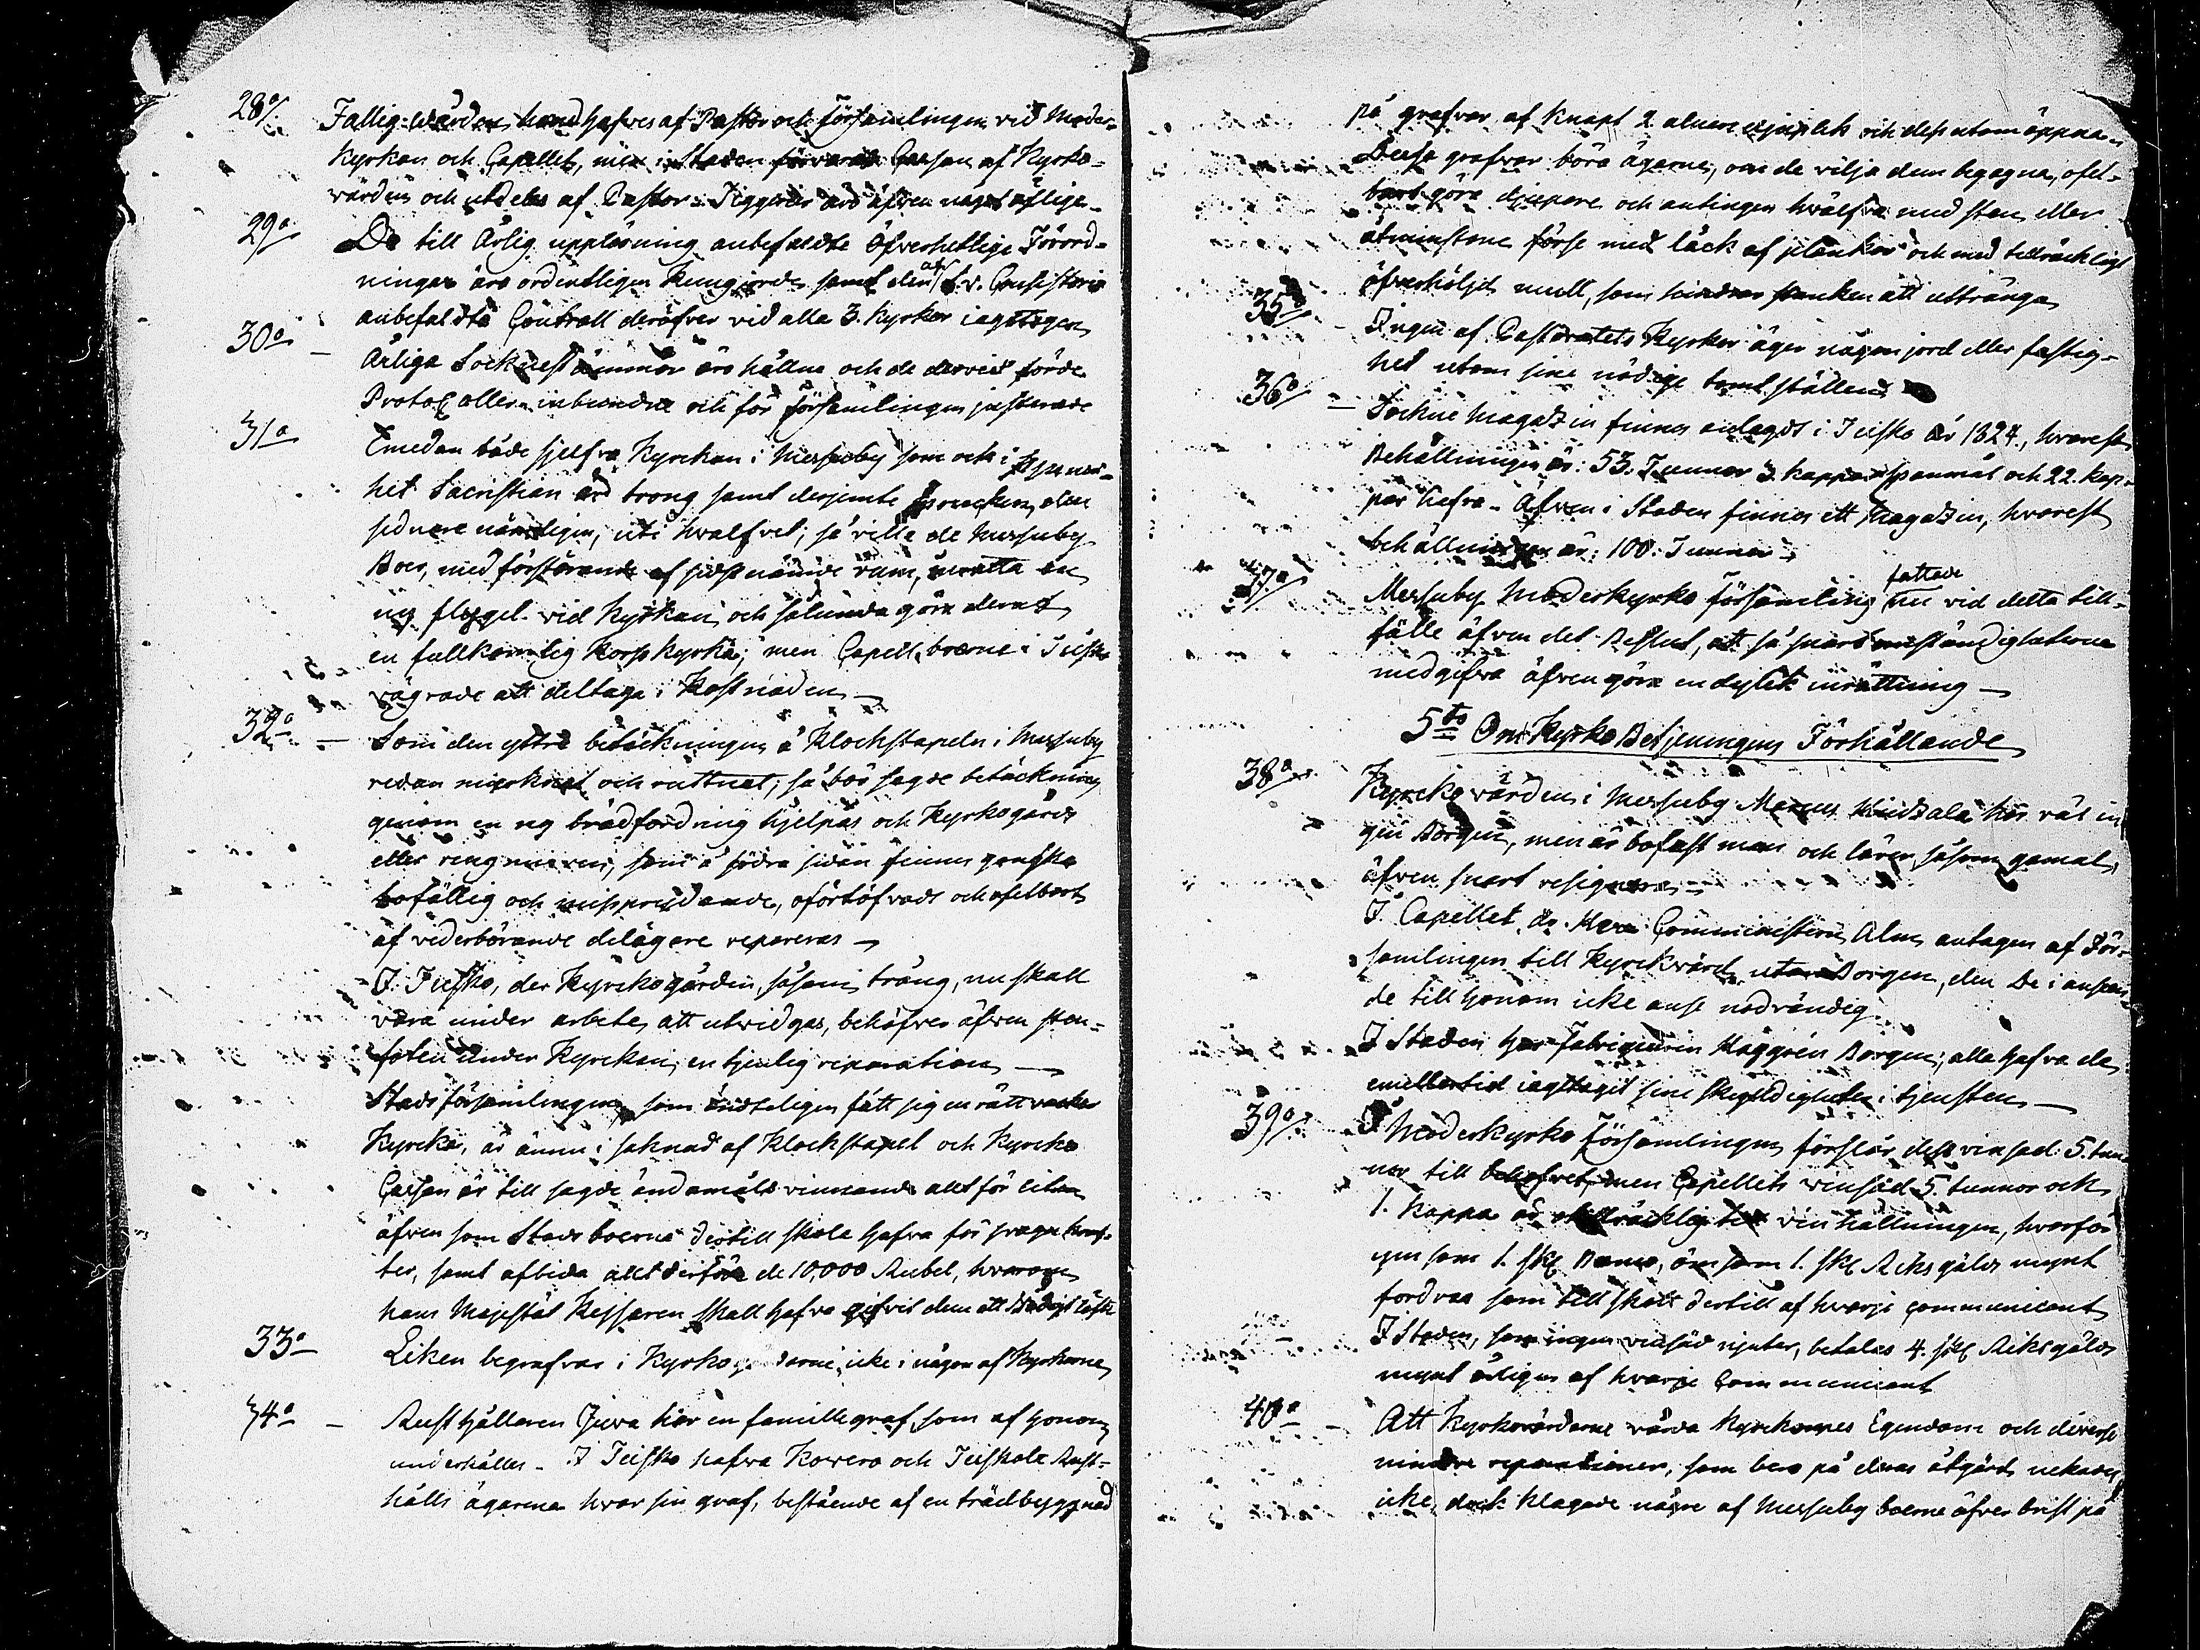 28o/. Fattig-Vården handhafves af Pastor och Församlingen vid Moder-
kyrkan och Capellet, men i Staden förvaras Cassan af Kyrko-
värden och utdelas af Pastor. Tiggerier äro äfven något öflige.
29o De till Årlig uppläsning anbefaldte Öfverhetlige Förord-
ningar äro ordentligen kungjorde samt den af h. v. Consistorio
anbefaldte Controll deröfver vid alla 3. kyrkor iagttagen
30o – Årliga Socknestämmor äro hållna och de dervid förde
Protocoller inbundna och för församlingen justerade
31o Emedan både sjelfva Kyrckan i Messuby som och i
het Sacristian är trång samt derjemte sprucken, den
sednare nämligen, uti hvalfvet; så ville de Messuby
Boer, med förstörande af sidstnämnde rum, inrätta en
ny flygel vid kyrkan och sålunda göra deraf
en fullkomlig korskyrka; men Capellboerne i Teisko
vägrade att deltaga i Kostnaden –
32o – Som den yttre betäckningen å Klockstapeln i Messuby
redan murknat och ruttnat; så bör sagde betäckning
genom en ny brädfordning hjelpas och Kyrkogårds
eller ringmuren, som å södra sidan finnes ganska
bofällig och misprydande, oförtöfvadt och ofelbart
af vederbörande delägare repareras –
I Teisko, der Kyrckogården, såsom trång, nu skall
vara under arbete att utvidgas, behöfver äfven sten-
foten under Kyrckan en tjenlig reparation –
Stadsförsamlingen, som ändteligen fått sig en rätt vacker
Kyrcka, är ännu i saknad af Klockstapel och Kyrcko
Cassan är till sagde ändamåls vinnande allt för liten
äfven som Stadsboerne dertill skola hafva för svaga kraf-
ter, samt afbida allt derföre de 10,000 Rubel, hvarom
hans Majestät Kejsaren skall hafva gifvit dem ett Nådigt löfte
33o Liken begrafvas i Kyrkogårdarne, icke i någon af Kyrkorne
34o – Rusthållaren Juva har en famillegraf, som af honom
underhålles – I Teisko hafva Kovero och Teiskola Rust-
hålls ägarena hvar sin graf, bestående af en trädbyggnad
på grafvar af knapt 2 alnars djuplek och dess utom öppna.
Dessa grafvar böra ägarne, om de vilja dem begagna, ofel-
bart göra djupare och antingen hvälfva med sten eller
åtminstone förse med läck af plankor och med tillräckligt
öfverhöljd mull, som hindrar stanken att utränga
35o/ – Ingen af Pastoratets Kyrkor äger någon jord eller fastig-
het utom sine nödige tomtställen
36o/ – Sockne Magazin finnes anlagdt i Teisko år 1824, hvarest
Behållningen är: 53. Tunnor 3. kappar spanmål och 22. kap-
par hafra – Äfven i Staden finnes ett Magazin, hvarest
behållningen är: 100. Tunnor
37o/ Messuby Moderkyrko församling fattade nu vid detta till-
fälle äfven det Beslut, att så snart omständigheterne
medgifva äfven göra en dylik inrättning –
5to Om Kyrko Betjeningens Förhållande
38o Kyrckovärden i Messuby har väl in
gen Borgen, men är bofast man och lärer, såsom gamal,
äfven snart resignera –
I Capellet är Herr Comministern Alm antagen af För-
samlingen till Kyrckvärd utan Borgen, den De i anseen-
de till honom icke anse nödvändig.
I Staden har Fabriqueuren Häggrén Borgen; alla hafva de
emellertid iagttagit sine skyldigheter i tjensten –
39o I Moderkyrko Församlingen förslår dess vinsäd: 5. tun-
nor till behofvet, men Capellets vinsäd 5. tunnor och
1. kappa är otillräcklig till vinhållningen, hvarför
som 1. sk Banco, än som 1. sk Riksgälds mynt
fordras som tillskott dertill af hvarje communicant
I Staden, som ingen vinsäd njuter, betalas 4. sk Riksgälds
mynt årligen af hvarje Communicant
40o – Att Kyrkovärdarne vårda Kyrckornes Egendom och diverse
mindre reparationer, som bero på deras åtgärd, nekades
icke, dock klagade någre af Messuby boerne öfver brist på